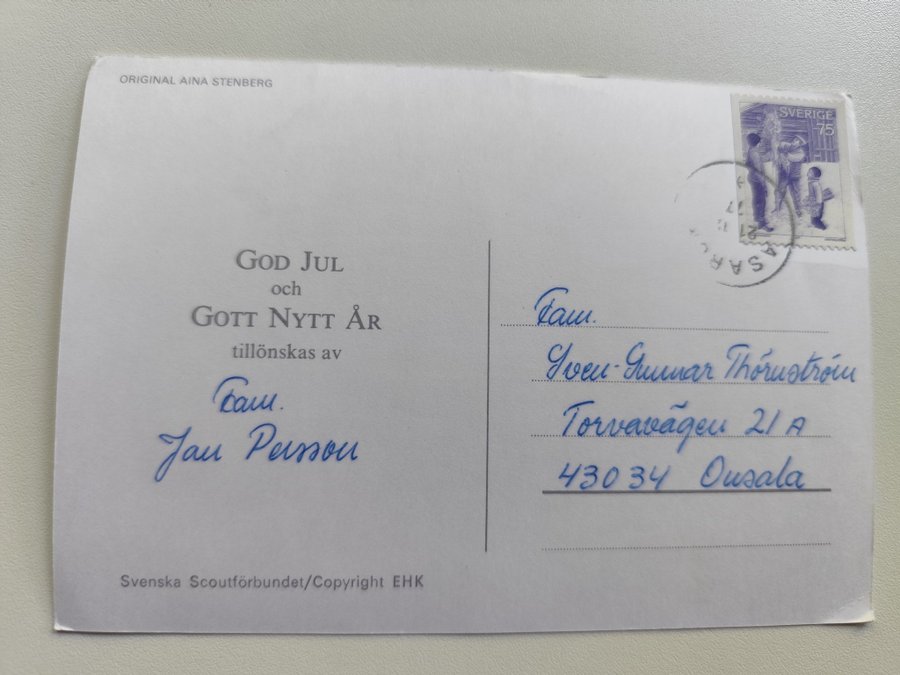 ORIGINAL AINA STENBERG
SVERIGE
75
21
77
GOD JUL
och
GOTT NYTT ÅR
tillönskas av
Fam.
Jan Persson
Fam.
Sven-Gunnar Thörnström
Torvavägen 21 A
43034 Onsala
Svenska Scoutförbundet/Copyright EHK